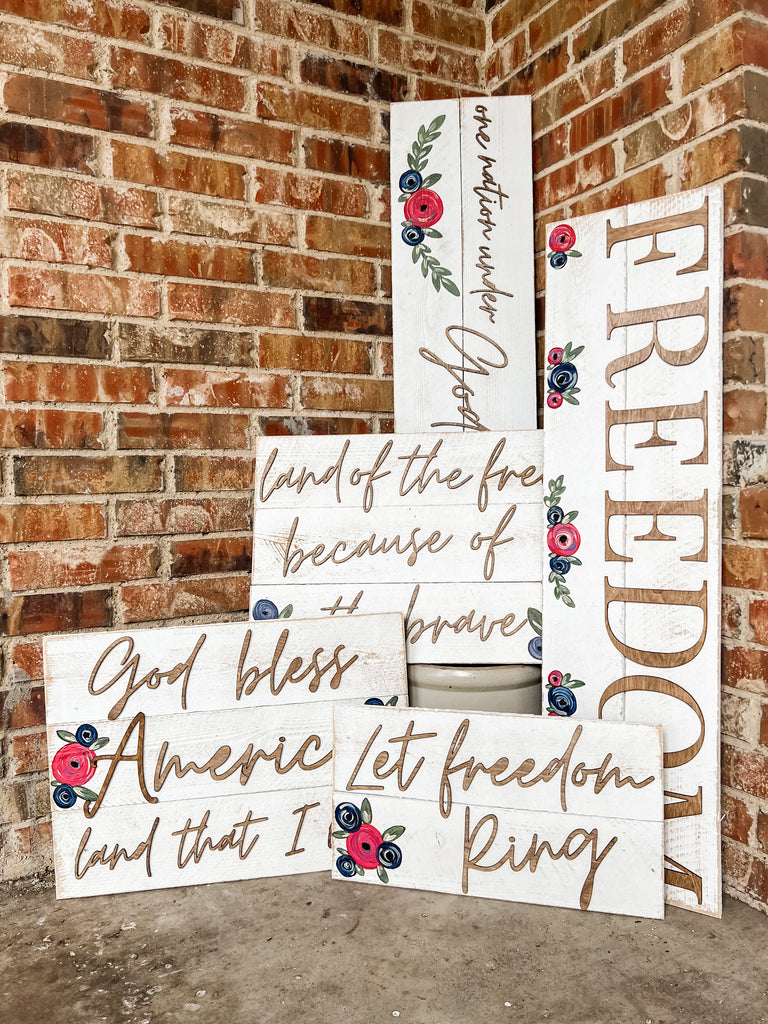 one nation under
God
FREEDOM
land of the fre
because of
brave
God bless
Americ
land that I
Let freedom
Ring